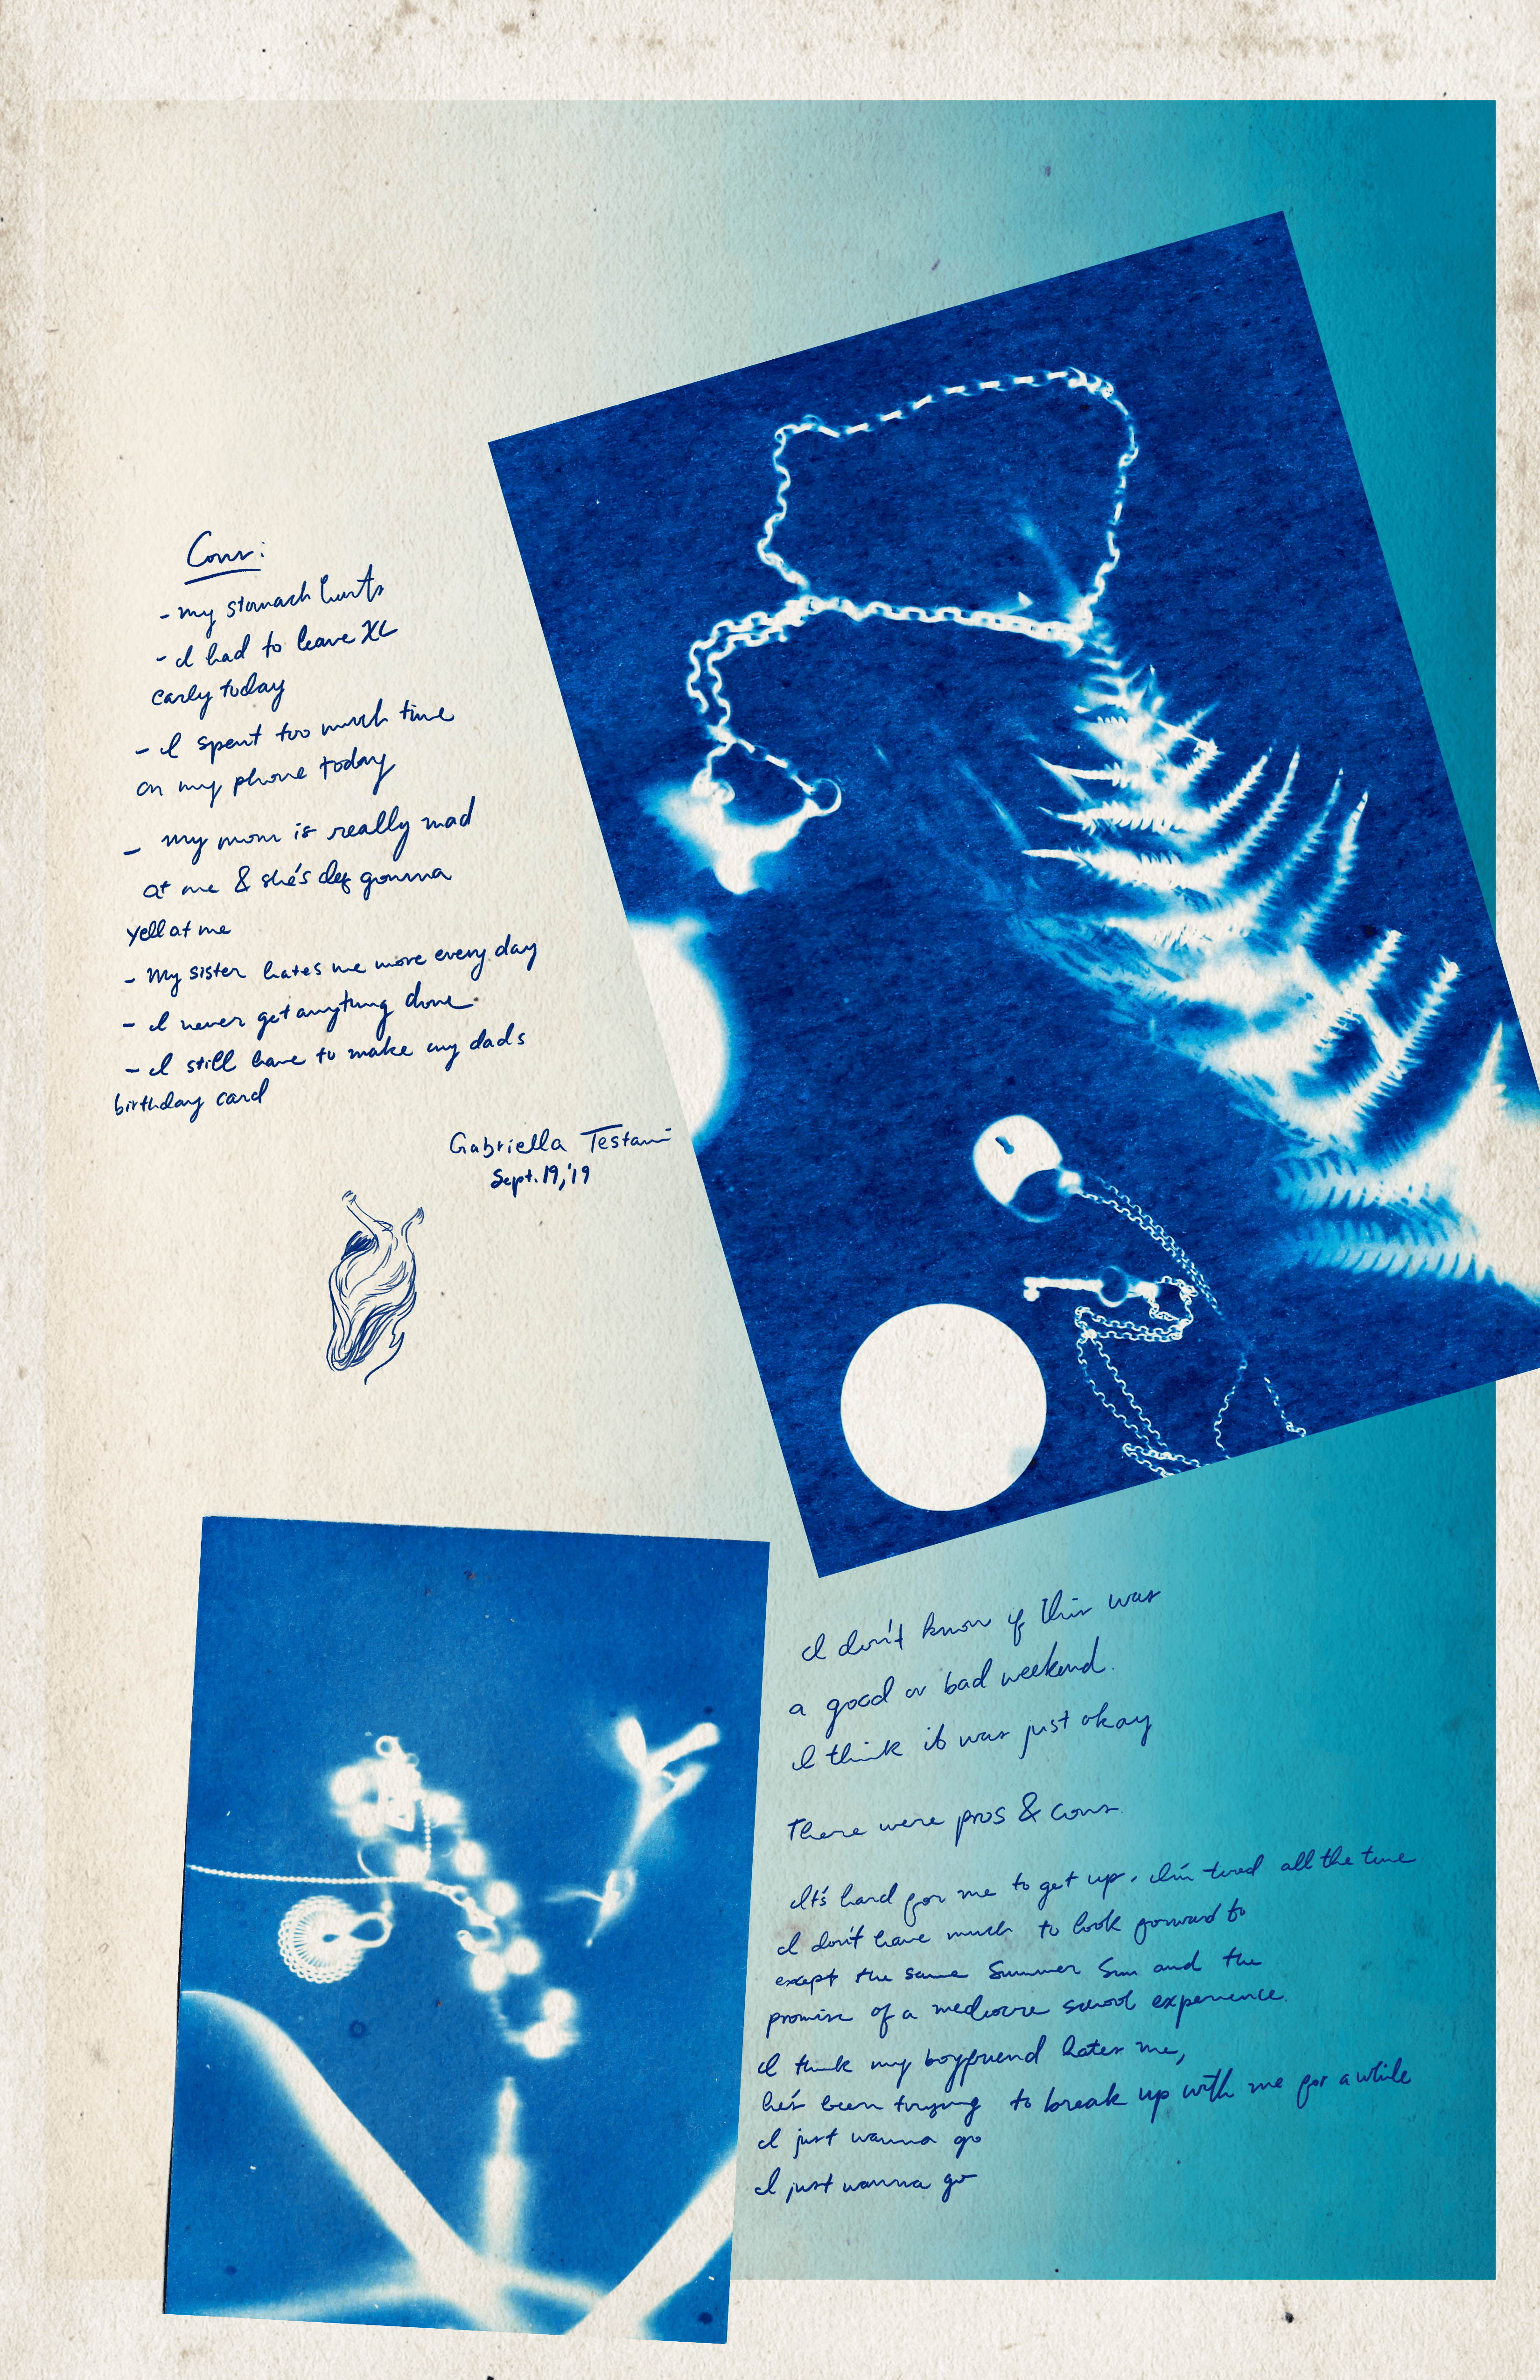 Cons:
- my stomach hurts
- I had to leave XC
early today
- I spent too much time
on my phone today
- my mom is really mad
at me & she's def gonna
yell at me
- My sister hates me more every day
- I never get anything done
- I still have to make my dads
birthday card
Gabriella Testani
Sept. 19, '19
I don't know if this was
a good or bad weekend.
I think it was just okay
There were pros & cons
It's hard for me to get up. I'm tired all the time
I don't have much to look forward to
except the same Summer Sun and the
promise of a mediocre school experience.
I think my boyfriend hates me,
he's been trying to break up with me for a while
I just wanna go
I just wanna go